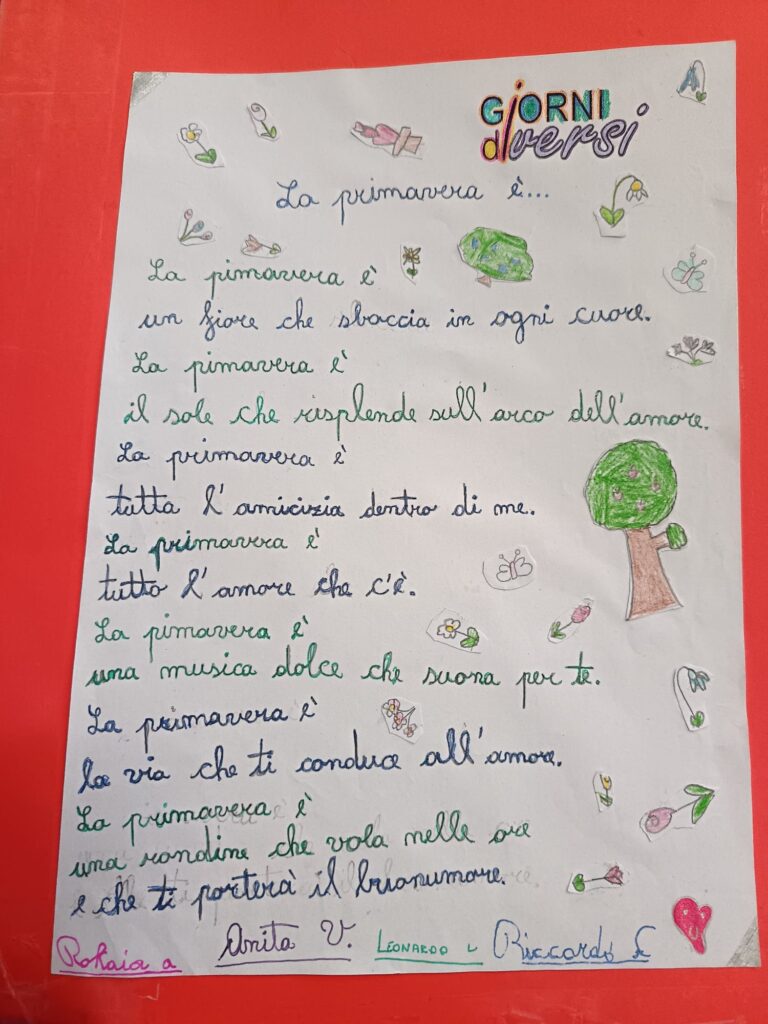 GIORNI
diversi
La primavera è...
La pimavera è
un fiore che sboccia in ogni cuore.
La pimavera è
il sole che risplende sull'arco dell'amore.
La primavera è
tutta l'amicizia dentro di me.
La primavera è
tutto l'amore che c'è.
La pimavera è
una musica dolce che suona per te.
La primavera è
la via che ti conduce all'amore.
La primavera è
una rondine che vola nelle ore
e che ti porterà il buonumore.
Rokaia a Anita V. LEONARDO L Riccardo